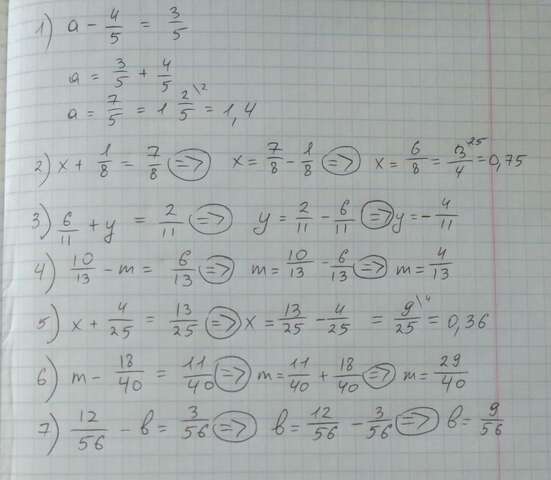 1) a - 4/5 = 3/5
a = 3/5 + 4/5
a = 7/5 = 1 2/5 \2 = 1,4
2) x + 1/8 = 7/8 => x = 7/8 - 1/8 => x = 6/8 = 3/4 \25 = 0,75
3) 6/11 + y = 2/11 => y = 2/11 - 6/11 => y = - 4/11
4) 10/13 - m = 6/13 => m = 10/13 - 6/13 => m = 4/13
5) x + 4/25 = 13/25 => x = 13/25 - 4/25 = 9/25 \4 = 0,36
6) m - 18/40 = 11/40 => m = 11/40 + 18/40 => m = 29/40
7) 12/56 - в = 3/56 => в = 12/56 - 3/56 => в = 9/56